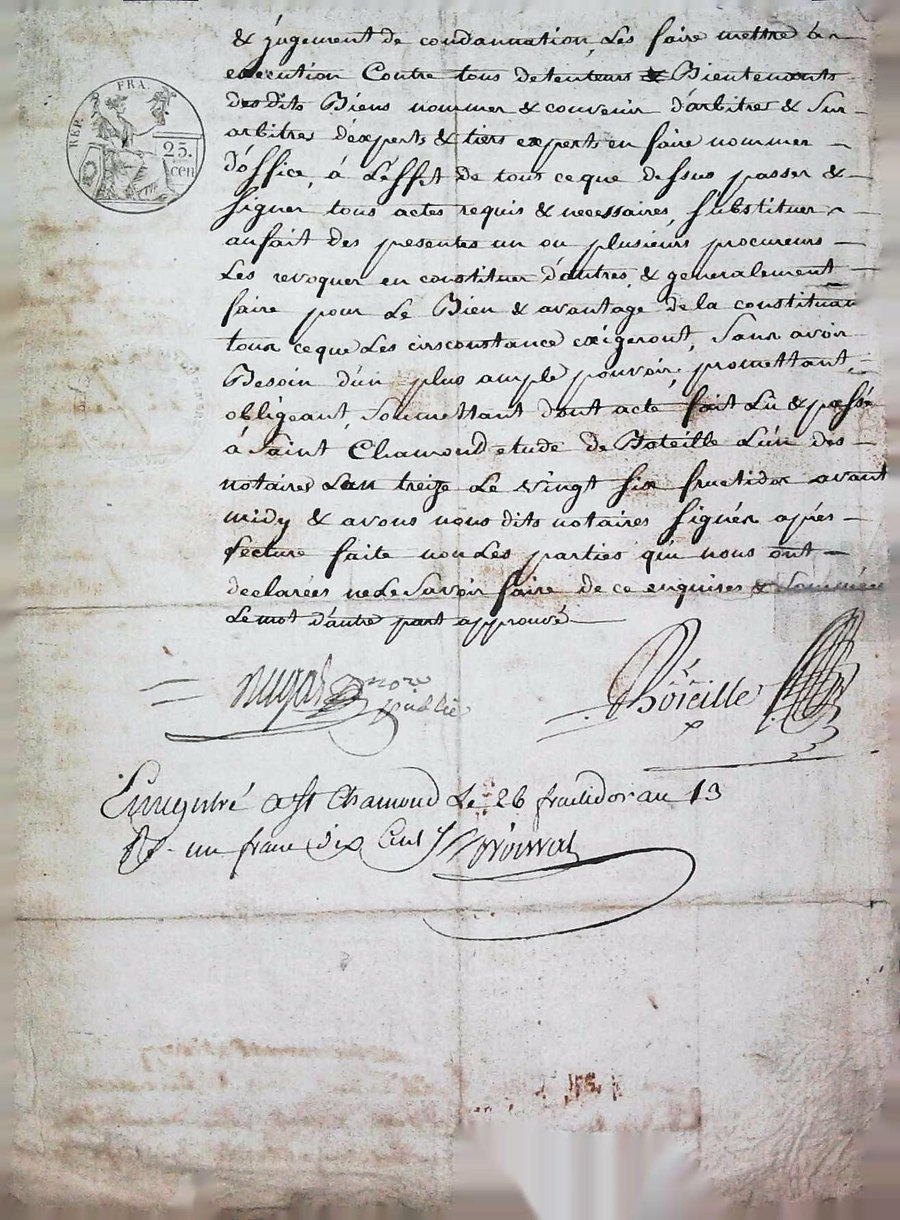 REP. FRA.
25.
cen
& jugement de condannation, Les faire mettre en
execution Contre tous detenteurs & Bientenants
desdits Biens nommer & convenir d'arbitres & Sur
arbitres d'experts & tiers experts en faire nommer
d'office, à L'effet de tout ce que dessus passer &
Signer tous actes requis & necessaires, Substituer
aufait des presentes un ou plusieurs procureurs
Les revoquer en constituer d'autres, & generalement
faire pour Le Bien & avantage de la constituan
tout ceque Les circonstances exigeront, Sans avoir
Besoin d'un plus ample pouvoir, promettant,
obligeant, Soumettant dont acte fait Lu & passé
à Saint Chamond etude de Boteille L'un des
notaires Lan treize Le vingt Six fructidor avant
midy & avons nous dits notaires Signés après
Lecture faite non Les parties qui nous ont
declarées ne Le Savoir faire de ce enquises & Sommées
Le mot d'autre part approuvé
public
Enregistré a St Chamond Le 26 fructidor an 13
un franc dix Cent